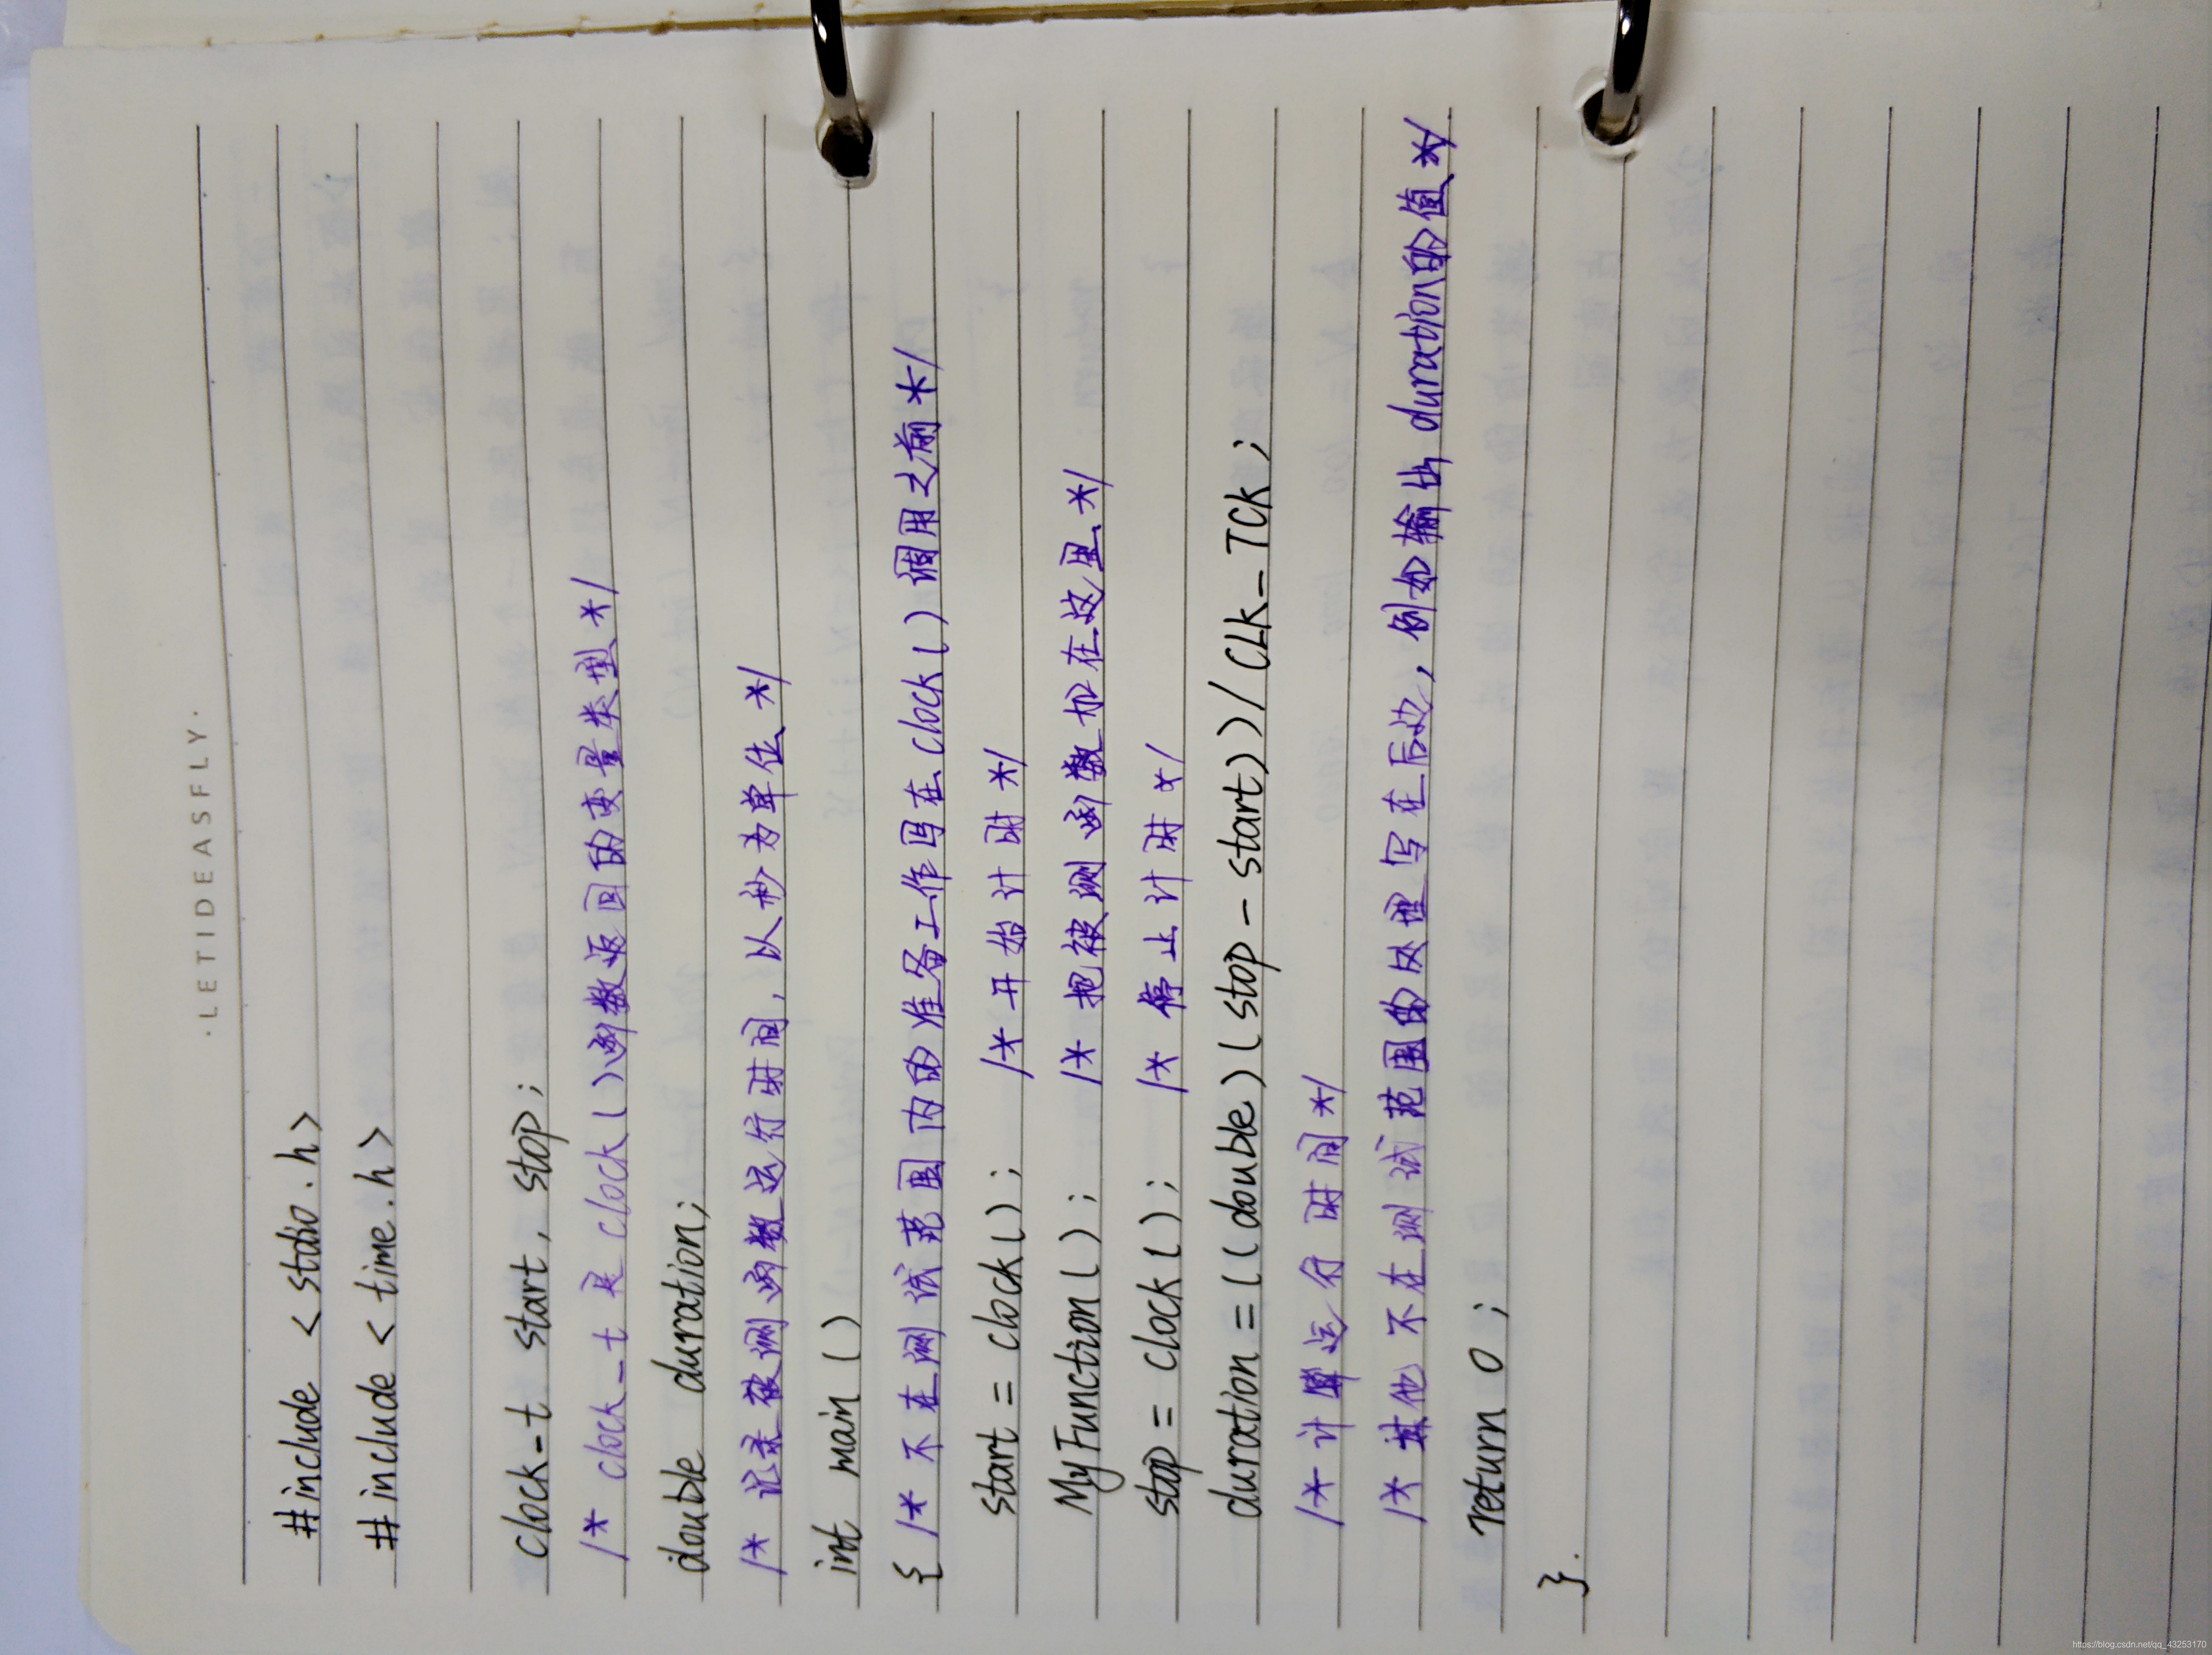 ·LETIDEASFLY·
#include <stdio.h>
#include <time.h>
clock_t start, stop;
/* clock_t 是 clock()函数返回的变量类型 */
double duration;
/* 记录被测函数运行时间，以秒为单位 */
int main ()
{ /* 不在测试范围内的准备工作写在clock()调用之前 */
start = clock(); /* 开始计时 */
MyFunction(); /* 把被测函数加在这里 */
stop = clock(); /* 停止计时 */
duration = ((double)(stop - start))/CLK_TCK;
/* 计算运行时间 */
/* 其他不在测试范围的处理写在后边，例如输出duration的值 */
return 0;
}.
https://blog.csdn.net/qq_43253170